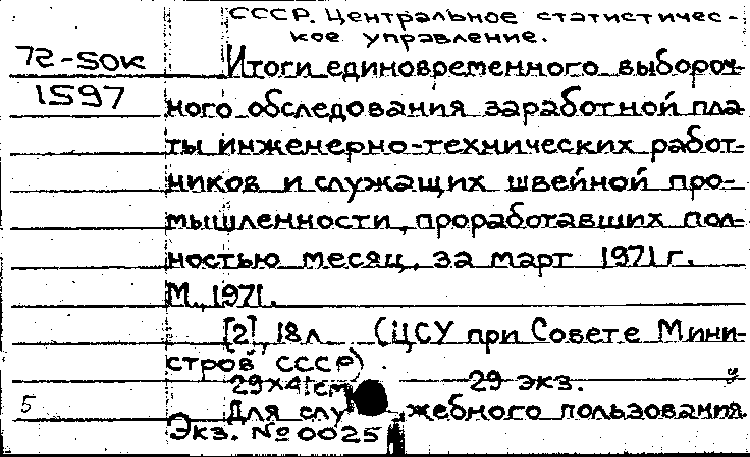 СССР. Центральное статистичес-
кое управление.
72-50к
Итоги единовременного выбороч-
1597
ного обследования заработной пла-
ты инженерно-технических работ-
ников и служащих швейной про-
мышленности, проработавших пол-
ностью месяц, за март 1971 г.
М., 1971.
[2], 18 л. (ЦСУ при Совете Мини-
стров СССР).
29×41см 29 экз.
5 Для служебного пользования.
Экз. № 0025